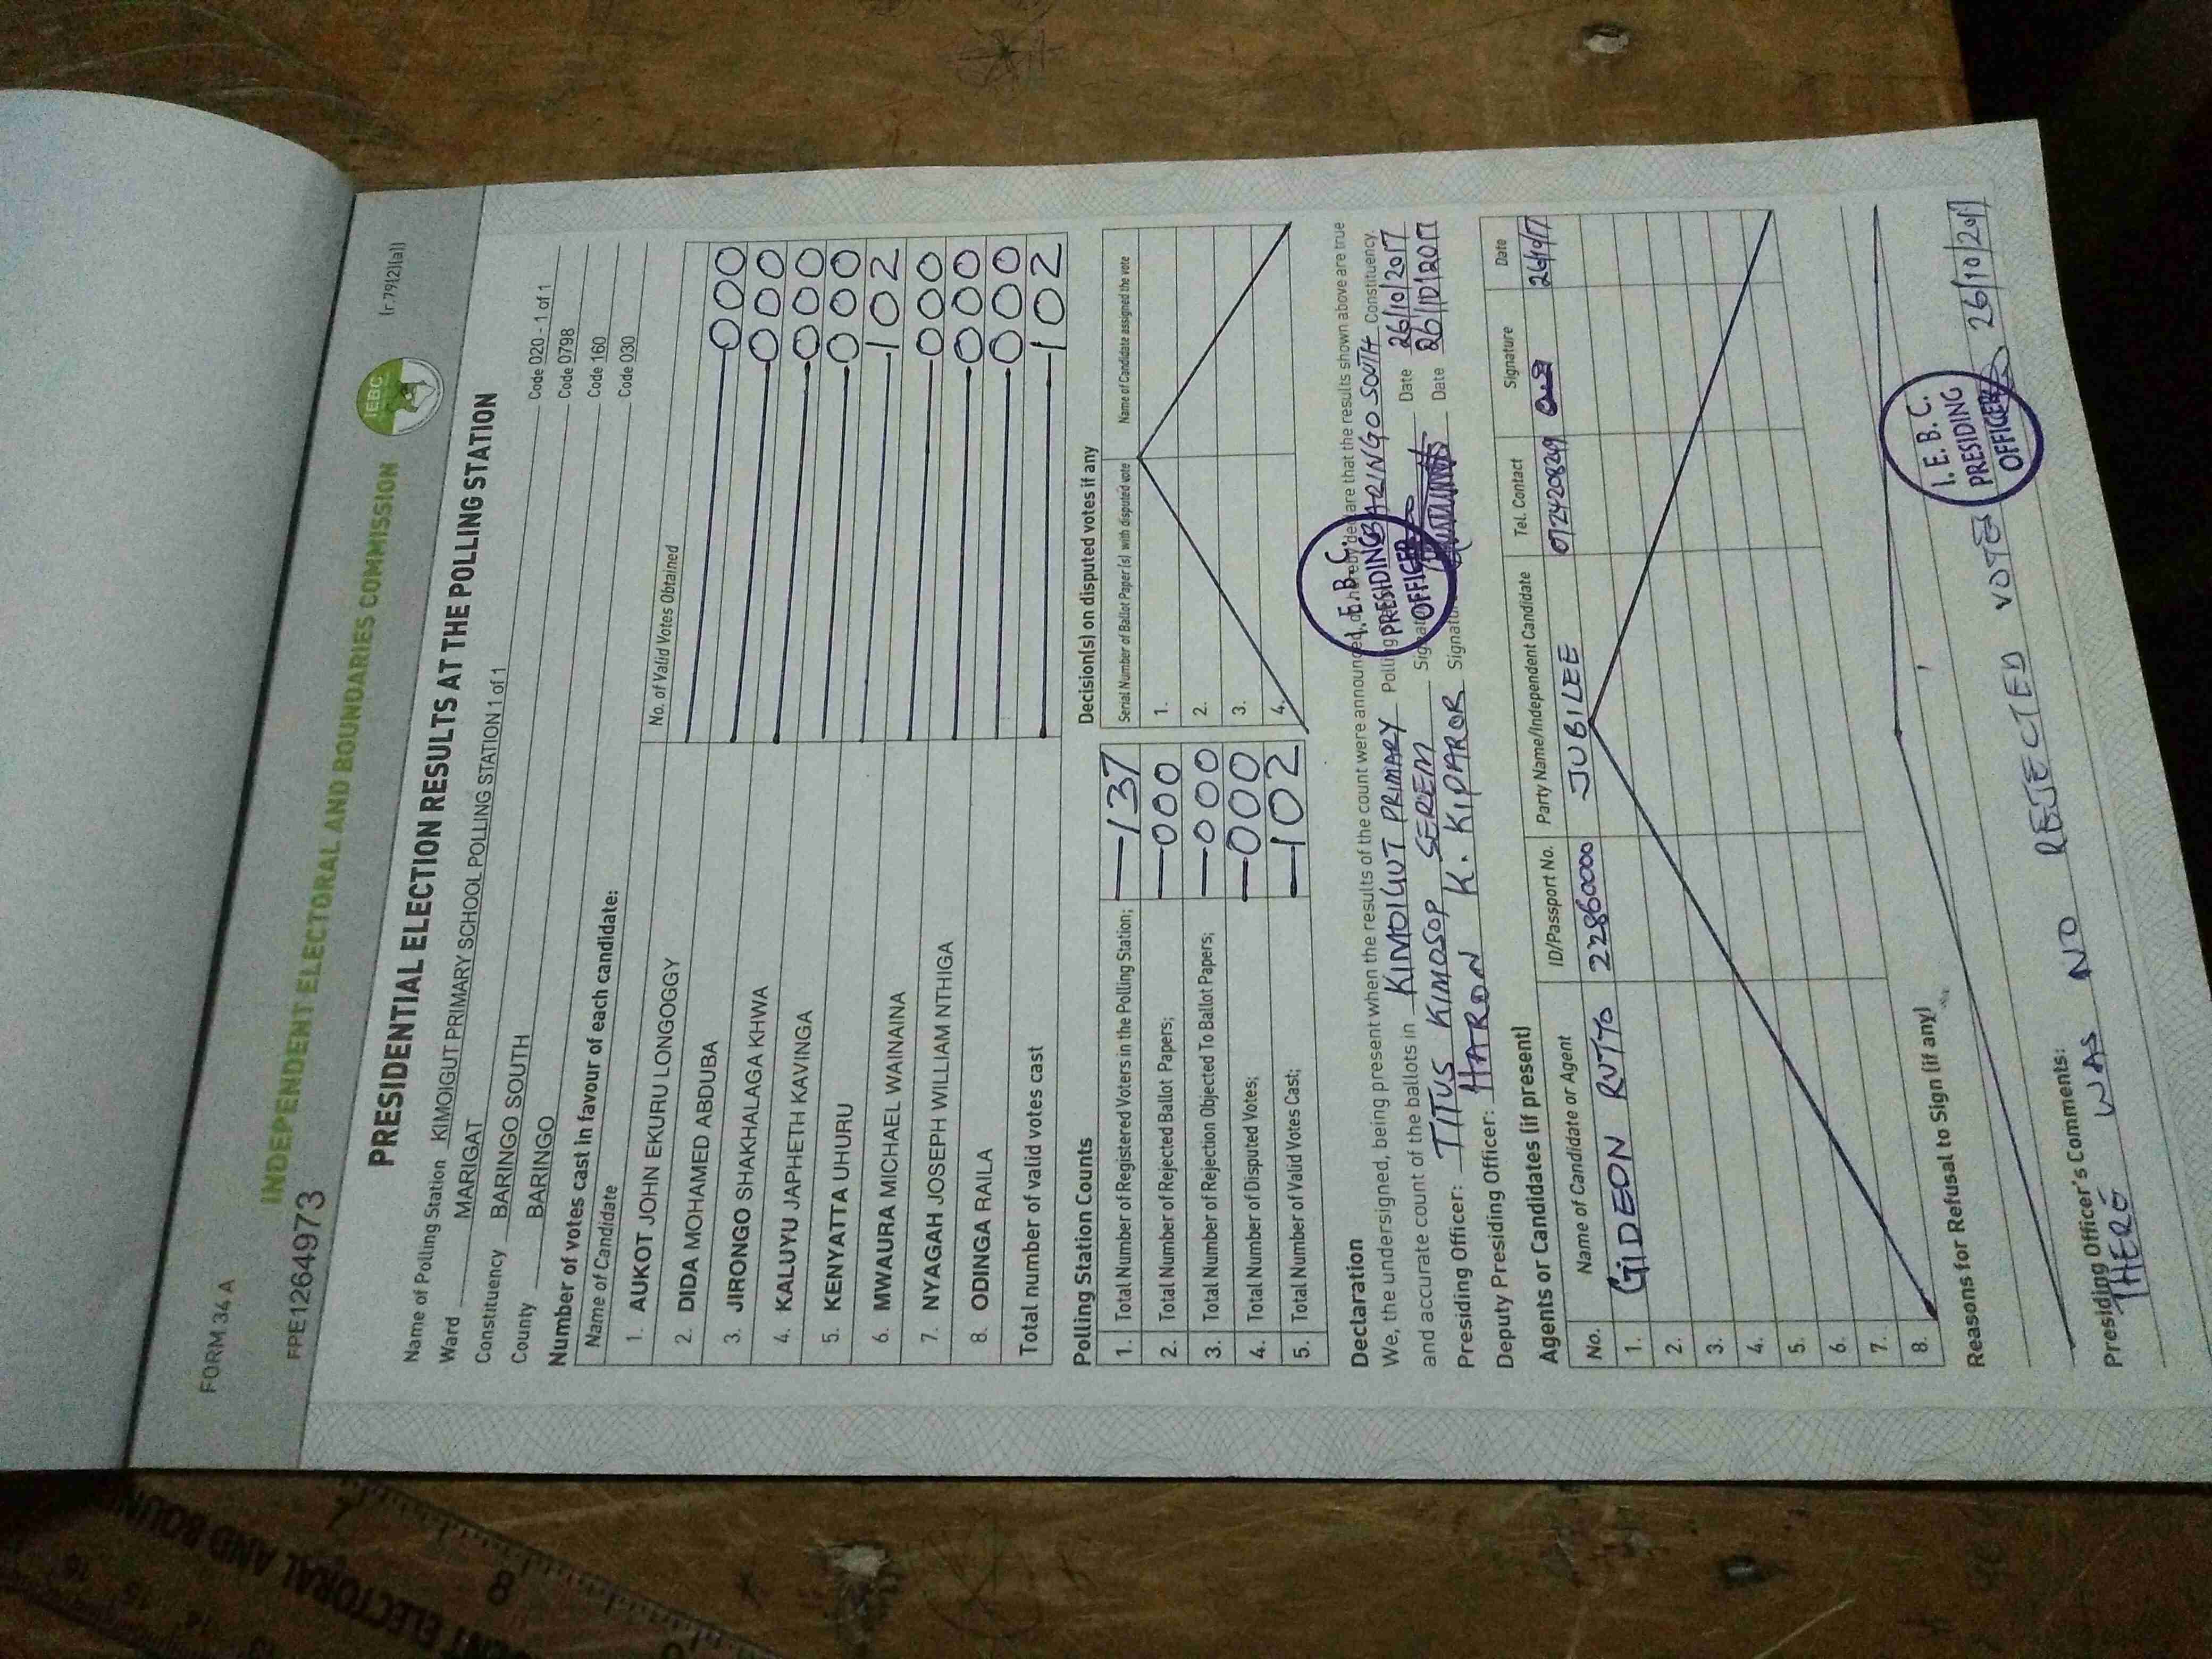 FORM 34 A
(r.79(2)(a))
INDEPENDENT ELECTORAL AND BOUNDARIES COMMISSION
IEBC
FPE1264973
PRESIDENTIAL ELECTION RESULTS AT THE POLLING STATION
Name of Polling Station KIMOIGUT PRIMARY SCHOOL POLLING STATION 1 of 1 Code 020 - 1 of 1
Ward MARIGAT Code 0798
Constituency BARINGO SOUTH Code 160
County BARINGO Code 030
Number of votes cast in favour of each candidate:
Name of Candidate No. of Valid Votes Obtained
1. AUKOT JOHN EKURU LONGOGGY 000
2. DIDA MOHAMED ABDUBA 000
3. JIRONGO SHAKHALAGA KHWA 000
4. KALUYU JAPHETH KAVINGA 000
5. KENYATTA UHURU 102
6. MWAURA MICHAEL WAINAINA 000
7. NYAGAH JOSEPH WILLIAM NTHIGA 000
8. ODINGA RAILA 000
Total number of valid votes cast 102
Polling Station Counts
1. Total Number of Registered Voters in the Polling Station; 137
2. Total Number of Rejected Ballot Papers; 000
3. Total Number of Rejection Objected To Ballot Papers; 000
4. Total Number of Disputed Votes; 000
5. Total Number of Valid Votes Cast; 102
Decision(s) on disputed votes if any
Serial Number of Ballot Paper(s) with disputed vote Name of Candidate assigned the vote
1.
2.
3.
4.
Declaration
We, the undersigned, being present when the results of the count were announced, do hereby declare that the results shown above are true
and accurate count of the ballots in KIMOIGUT PRIMARY Polling BARINGO SOUTH Constituency.
Presiding Officer: TITUS KIMOSOP SEREM Signature Date 26/10/2017
Deputy Presiding Officer: HARON K. KIPAROR Signature Date 26/10/2017
I.E.B.C.
PRESIDING
OFFICER
Agents or Candidates (if present)
No. Name of Candidate or Agent ID/Passport No. Party Name/Independent Candidate Tel. Contact Signature Date
1. GIDEON RUTTO 22860000 JUBILEE 0724208249 26/10/17
2.
3.
4.
5.
6.
7.
8.
Reasons for Refusal to Sign (if any)
Presiding Officer's Comments:
THERE WAS NO REJECTED VOTE 26/10/2017
I.E.B.C.
PRESIDING
OFFICER
ENT ELECTORAL AND BOUN
7
8
13
14
15
16